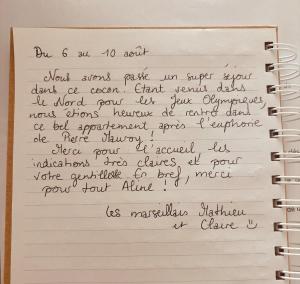 Du 6 au 10 août
Nous avons passé un super séjour
dans ce cocon. Etant venus dans
le Nord pour les Jeux Olympiques,
nous étions heureux de rentrer dans
ce bel appartement après l'euphorie
de Pierre Mauroy !
Merci pour l'accueil, les
indications très claires, et pour
votre gentillesse. En bref, merci
pour tout Aline !
Les marseillais Mathieu
et Claire